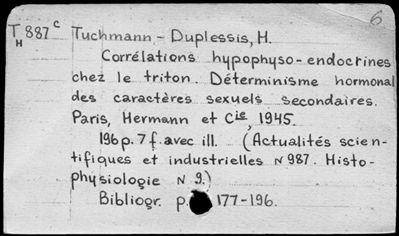 6
T 887 c Tuchmann - Duplessis, H.
H
Corrélations hypophyso-endocrines
chez le triton. Déterminisme hormonal
des caractères sexuels secondaires.
Paris, Hermann et Cie, 1945.
196 p. 7 f. avec ill. (Actualités scien-
tifiques et industrielles N 987. Histo-
physiologie N 9.)
Bibliogr. p. 177-196.